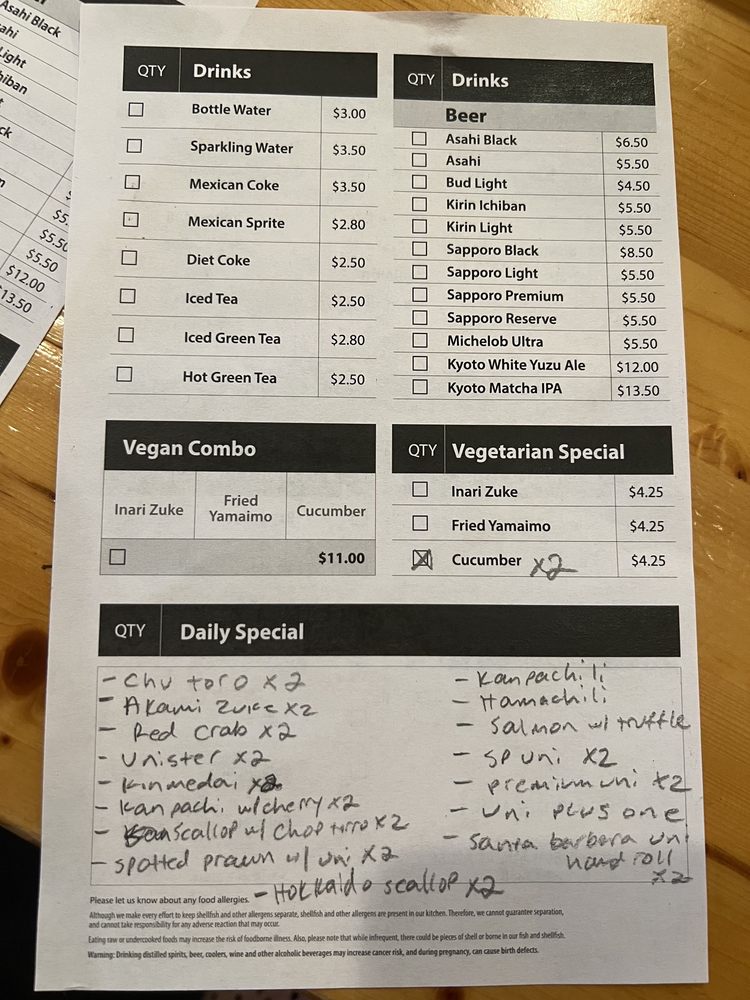 Asahi Black
ahi
Light
hiban
t
ck
$5.
$5.50
$5.50
$12.00
13.50
QTY Drinks
Bottle Water $3.00
Sparkling Water $3.50
Mexican Coke $3.50
Mexican Sprite $2.80
Diet Coke $2.50
Iced Tea $2.50
Iced Green Tea $2.80
Hot Green Tea $2.50
QTY Drinks
Beer
Asahi Black $6.50
Asahi $5.50
Bud Light $4.50
Kirin Ichiban $5.50
Kirin Light $5.50
Sapporo Black $8.50
Sapporo Light $5.50
Sapporo Premium $5.50
Sapporo Reserve $5.50
Michelob Ultra $5.50
Kyoto White Yuzu Ale $12.00
Kyoto Matcha IPA $13.50
Vegan Combo
Inari Zuke Fried Yamaimo Cucumber
$11.00
QTY Vegetarian Special
Inari Zuke $4.25
Fried Yamaimo $4.25
Cucumber x2 $4.25
QTY Daily Special
- Chu toro x2
- Akami Zuke x2
- Red crab x2
- Unister x2
- Kinmedai x2
- Kanpachi w/cherry x2
- scallop w/ chop torro x2
- spotted prawn w/ uni x2
- Hokkaido scallop x2
- Kanpachi li
- Hamachi li
- Salmon w/ truffle
- SP uni x2
- premium uni x2
- Uni plus one
- Santa barbara uni
hand roll
x2
Please let us know about any food allergies.
Although we make every effort to keep shellfish and other allergens separate, shellfish and other allergens are present in our kitchen. Therefore, we cannot guarantee separation,
and cannot take responsibility for any adverse reaction that may occur.
Eating raw or undercooked foods may increase the risk of foodborne illness. Also, please note that while infrequent, there could be pieces of shell or borne in our fish and shellfish.
Warning: Drinking distilled spirits, beer, coolers, wine and other alcoholic beverages may increase cancer risk, and during pregnancy, can cause birth defects.